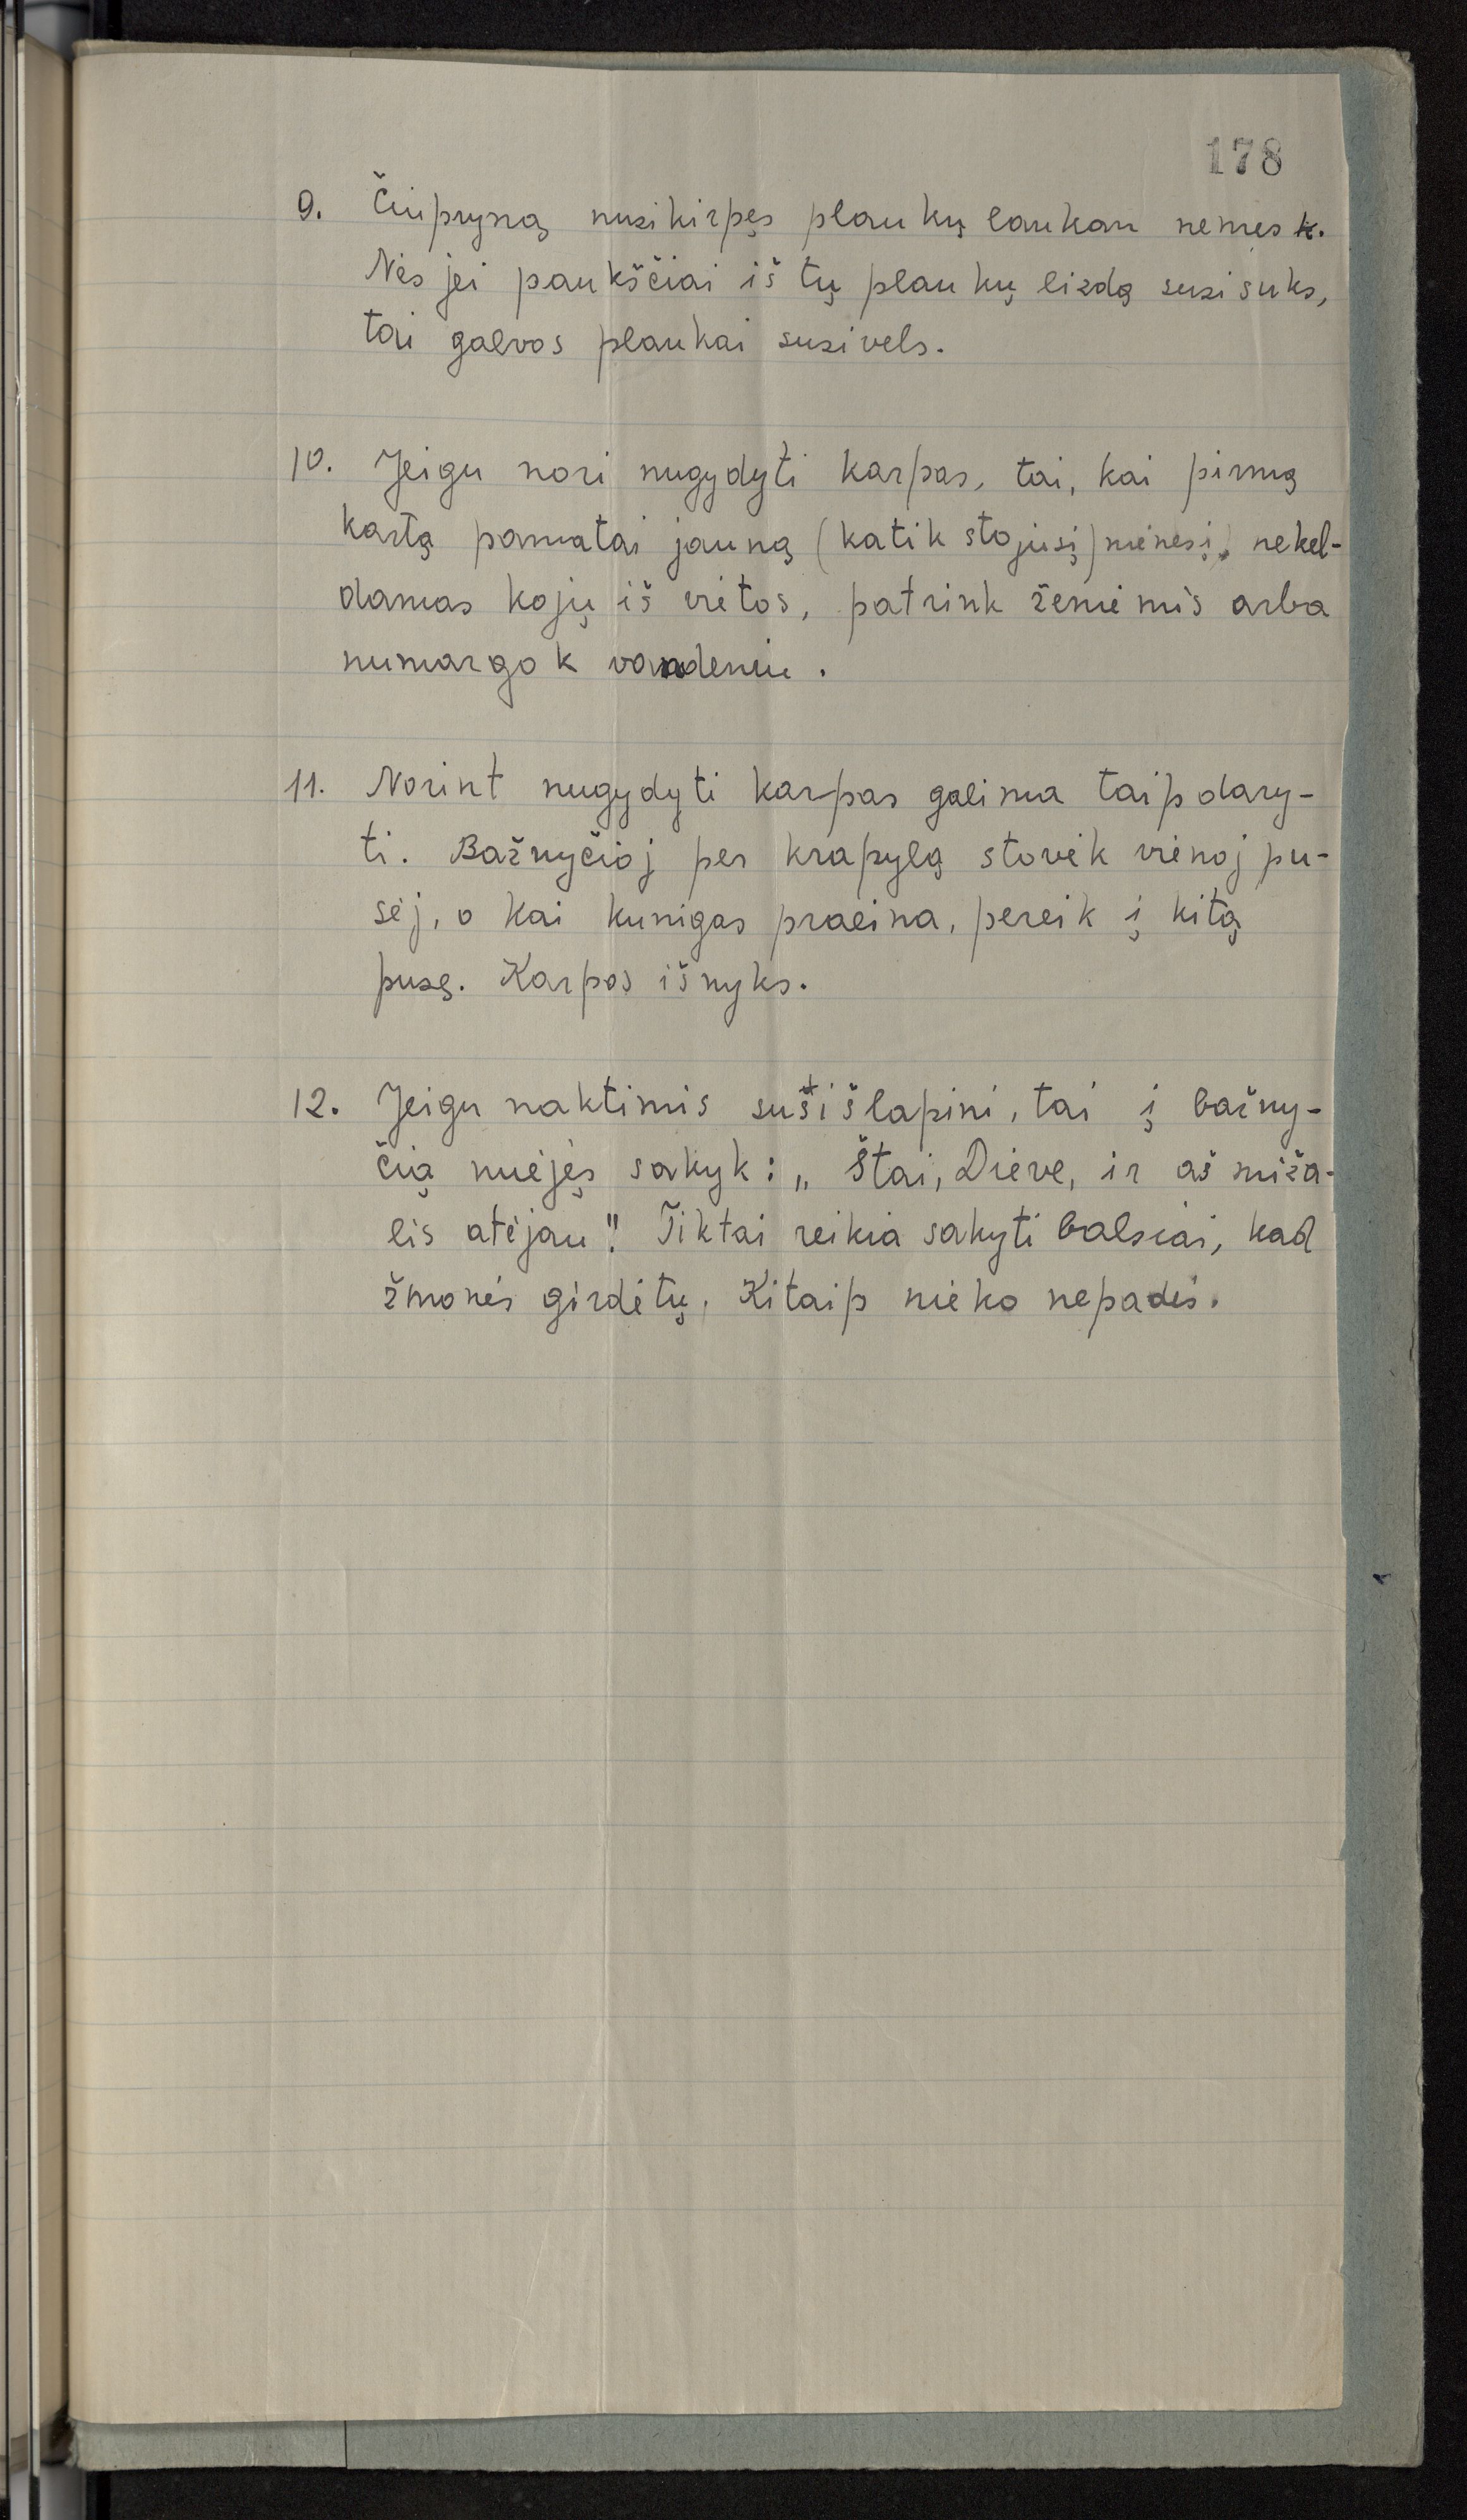 178
9. Čiupryną nusikirpęs plaukų laukan nemesk.
Nės jei paukščiai iš tų plaukų lizdą susisuks,
tai galvos plaukai susivels.
10. Jeigu nori nugydyti karpas, tai, kai pirmą
kartą pamatai jauną (katik stojusį) mėnesį, nekel-
damas kojų iš vietos, patrink žemėmis arba
numazgok vandeniu.
11. Norint nugydyti karpas galima taip dary-
ti. Bažnyčioj per krapylą stovėk vienoj pu-
sėj, o kai kunigas praeina, pereik į kitą
pusę. Karpos išnyks.
12. Jeigu naktimis susišlapini, tai į bažny-
čią nuėjęs sakyk: „Štai, Dieve, ir aš miža-
lis atėjau". Tiktai reikia sakyti balsiai, kad
žmonės girdėtų. Kitaip nieko nepadės.